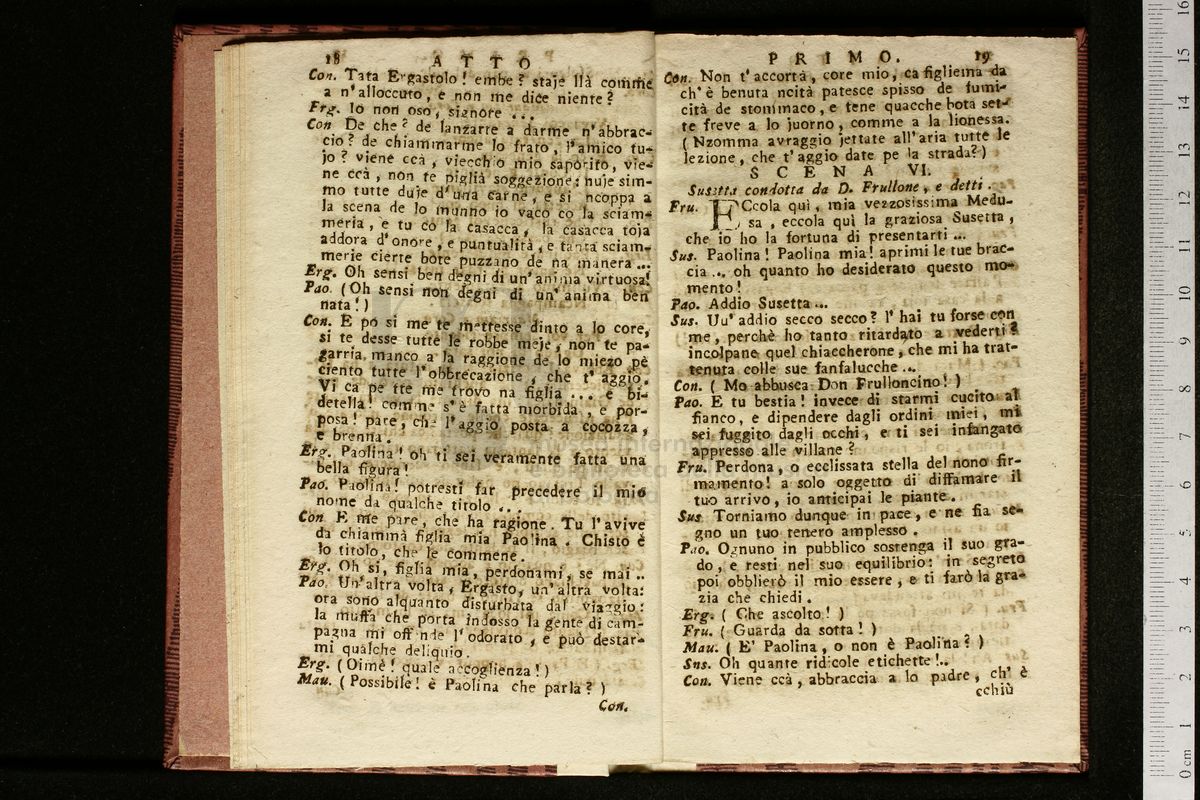 18 ATTO
Con. Tata Ergastolo! embe? staje llà comme
a n'alloccuto, e non me dice niente?
Erg. Io non oso, signore ...
Con De che? de lanzarte a darme n'abbrac-
cio? de chiammarme lo frato, l'amico tu-
jo? viene ccà, viecchio mio saporito, vie-
ne ccà, non te piglià soggezione: nuje sim-
mo tutte duje d'una carne, e si ncoppa a
la scena de lo munno io vaco co la sciam-
meria, e tu co la casacca, la casacca toja
addora d'onore, e puntualità, e tanta sciam-
merie cierte bote puzzano de na manera ...
Erg. Oh sensi ben degni di un'anima virtuosa!
Pao. (Oh sensi non degni di un'anima ben
nata!)
Con. E po si me te mettesse dinto a lo core,
si te desse tutte le robbe meje, non te pa-
garria manco a la raggione de lo miezo pè
ciento tutte l'obbrecazione, che t'aggio.
Vi ca pe tte me trovo na figlia ... e bi-
detella! comme s'è fatta morbida, e por-
posa! pare, che l'aggio posta a cocozza,
e brenna.
Erg. Paolina! oh ti sei veramente fatta una
bella figura!
Pao. Paolina! potresti far precedere il mio
nome da qualche titolo ...
Con E me pare, che ha ragione. Tu l'avive
da chiammà figlia mia Paolina. Chisto è
lo titolo, che le commene.
Erg. Oh sì, figlia mia, perdonami, se mai ..
Pao. Un'altra volta, Ergasto, un'altra volta:
ora sono alquanto disturbata dal viaggio:
la muffa che porta indosso la gente di cam-
pagna mi offende l'odorato, e può destar-
mi qualche deliquio.
Erg. (Oimè! quale accoglienza!)
Mau. (Possibile! è Paolina che parla?)
Con.
PRIMO. 19
Con. Non t'accorta, core mio, ca figliema da
ch'è benuta ncità patesce spisso de fumi-
cità de stommaco, e tene quacche bota set-
te freve a lo juorno, comme a la lionessa.
(Nzomma avraggio jettate all'aria tutte le
lezione, che t'aggio date pe la strada?)
SCENA VI.
Susetta condotta da D. Frullone, e detti.
Fru. ECcola quì, mia vezzosissima Medu-
sa, eccola quì la graziosa Susetta,
che io ho la fortuna di presentarti ...
Sus. Paolina! Paolina mia! aprimi le tue brac-
cia ... oh quanto ho desiderato questo mo-
mento!
Pao. Addio Susetta ...
Sus. Uu'addio secco secco? l'hai tu forse con
me, perchè ho tanto ritardato a vederti?
incolpane quel chiaccherone, che mi ha trat-
tenuta colle sue fanfalucche ...
Con. (Mo abbusca Don Frulloncino!)
Pao. E tu bestia! invece di starmi cucito al
fianco, e dipendere dagli ordini miei, mi
sei fuggito dagli occhi, e ti sei infangato
appresso alle villane?
Fru. Perdona, o ecclissata stella del nono fir-
mamento! a solo oggetto di diffamare il
tuo arrivo, io anticipai le piante.
Sus Torniamo dunque in pace, e ne fia se-
gno un tuo tenero amplesso.
Pao. Ognuno in pubblico sostenga il suo gra-
do, e resti nel suo equilibrio: in segreto
poi obblierò il mio essere, e ti farò la gra-
zia che chiedi.
Erg. (Che ascolto!)
Fru. (Guarda da sotta!)
Mau. (E' Paolina, o non è Paolina?)
Sns. Oh quante ridicole etichette!..
Con. Viene ccà, abbraccia a lo padre, ch'è
cchiù